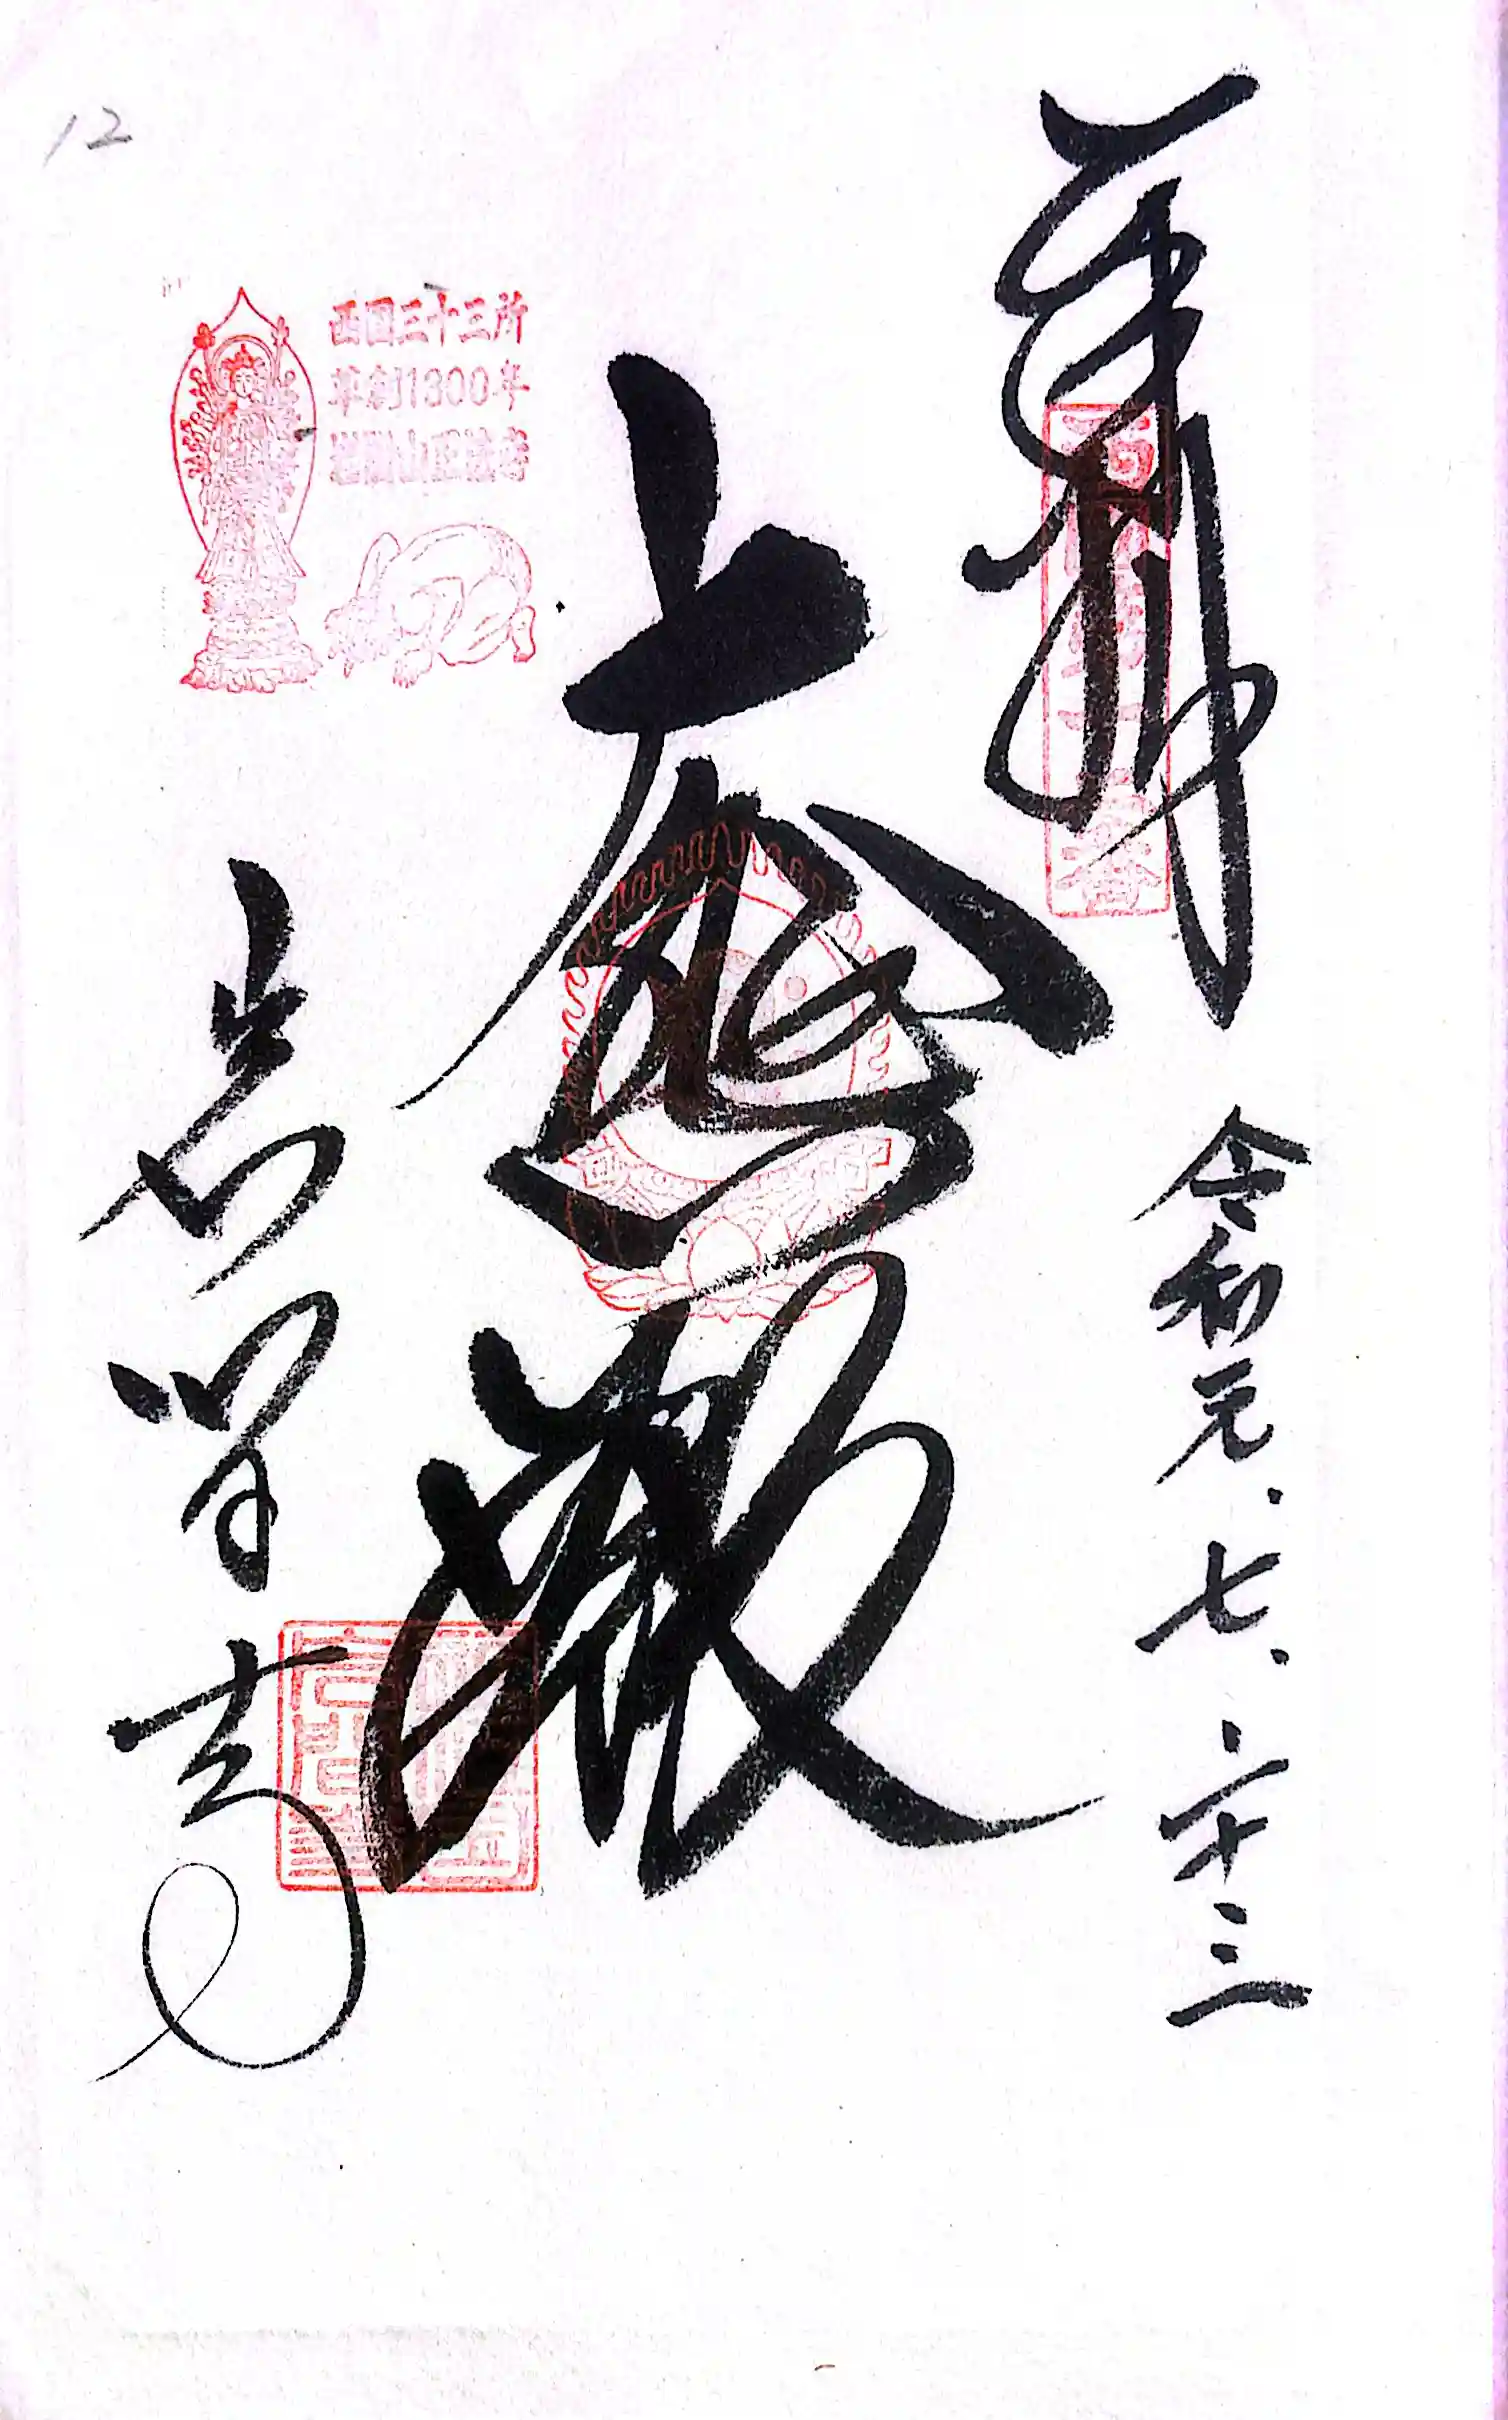 奉拝
令和元、七、二十三
大悲殿
岩間寺
西国三十三所
草創1300年
岩間山正法寺
西国第十二番
12